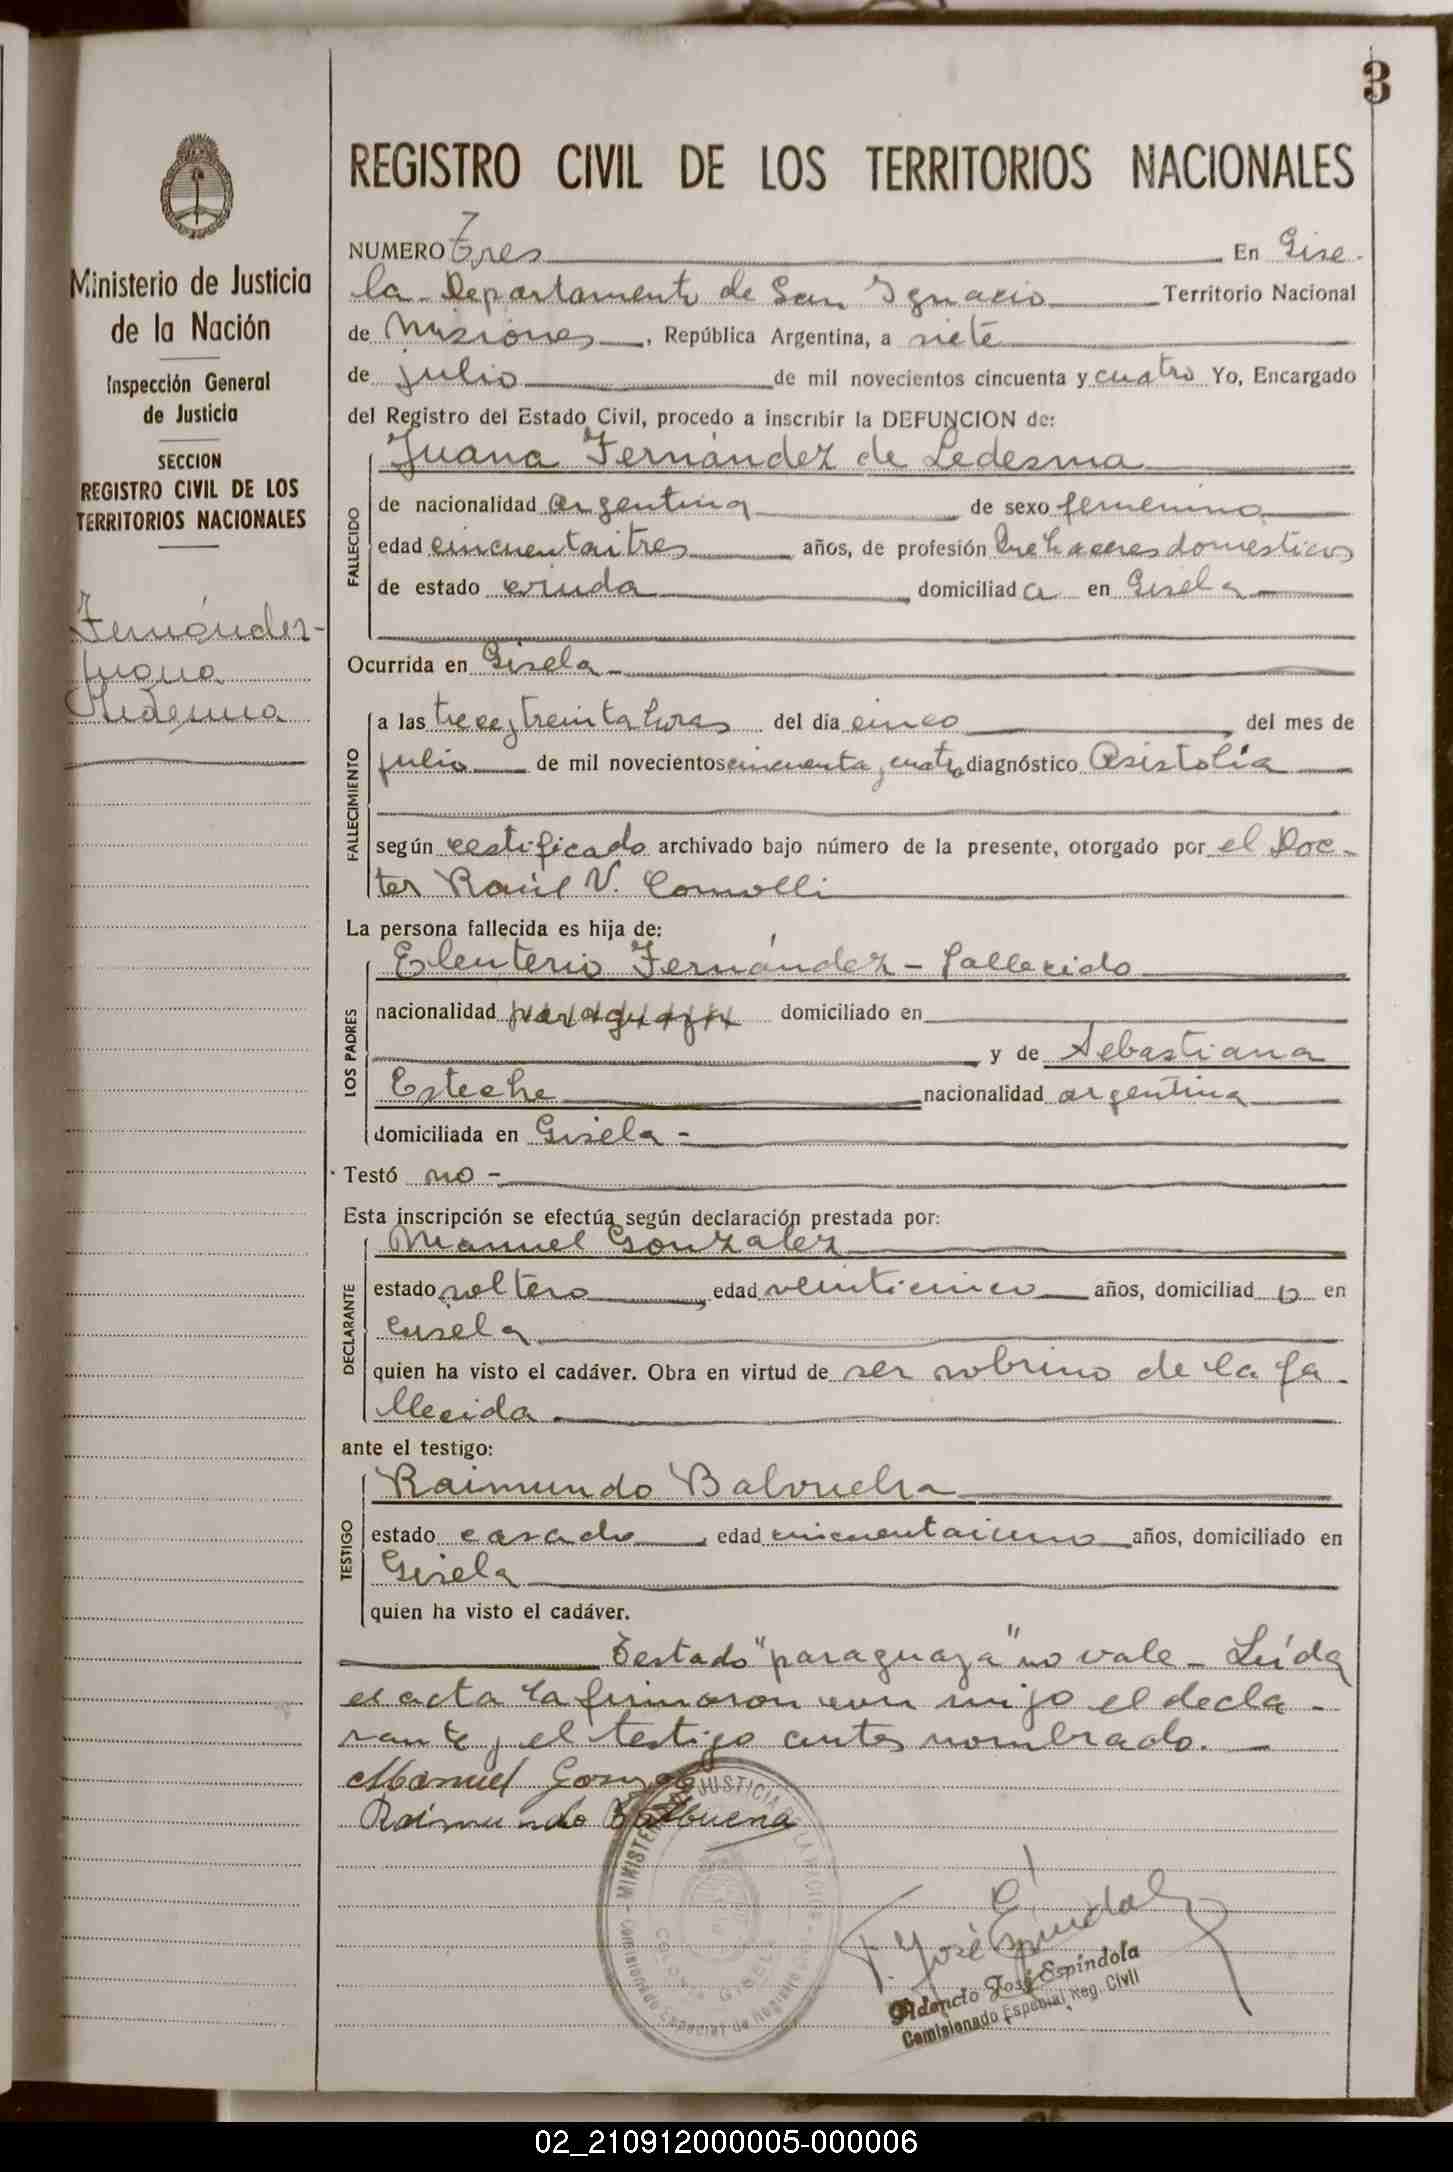 3
Ministerio de Justicia
de la Nación
Inspección General
de Justicia
SECCION
REGISTRO CIVIL DE LOS
TERRITORIOS NACIONALES
Fernández-
Juana
Ledesma
REGISTRO CIVIL DE LOS TERRITORIOS NACIONALES
NUMERO Tres En Gise-
la - Departamento de San Ignacio Territorio Nacional
de Misiones, República Argentina, a siete
de julio de mil novecientos cincuenta y cuatro Yo, Encargado
del Registro del Estado Civil, procedo a inscribir la DEFUNCION de:
Juana Fernández de Ledesma
FALLECIDO
de nacionalidad argentina de sexo femenino
edad cincuentaitres años, de profesión Quehaceres domesticos
de estado viuda, domiciliad a en Gisela
Ocurrida en Gisela
FALLECIMIENTO
a las trece y treinta horas del día cinco, del mes de
julio de mil novecientos cincuenta y cuatro diagnóstico Asistolia
según certificado archivado bajo número de la presente, otorgado por el Doc-
tor Raúl V. Comolli
La persona fallecida es hija de:
LOS PADRES
Eleuterio Fernández - fallecido
nacionalidad paraguaya domiciliado en
, y de Sebastiana
Esteche nacionalidad argentina
domiciliada en Gisela -
Testó no -
Esta inscripción se efectúa según declaración prestada por:
DECLARANTE
Manuel Gonzalez
estado soltero, edad veinticinco años, domiciliad o en
Gisela
quien ha visto el cadáver. Obra en virtud de ser sobrino de la fa-
llecida
ante el testigo:
TESTIGO
Raimundo Balvuena
estado casado, edad cincuentaiuno años, domiciliado en
Gisela
quien ha visto el cadáver.
Testado "paraguaya" no vale - Leída
el acta la firmaron con migo el decla-
rante y el testigo antes nombrado.
Manuel Gonzalez
Raimundo Balbuena
MINISTERIO DE JUSTICIA DE LA NACION
Comisionado Especial de Registro Civil
COLONIA GISELA
F. José Espindola
Fidencio José Espíndola
Comisionado Especial Reg. Civil
02_210912000005-000006